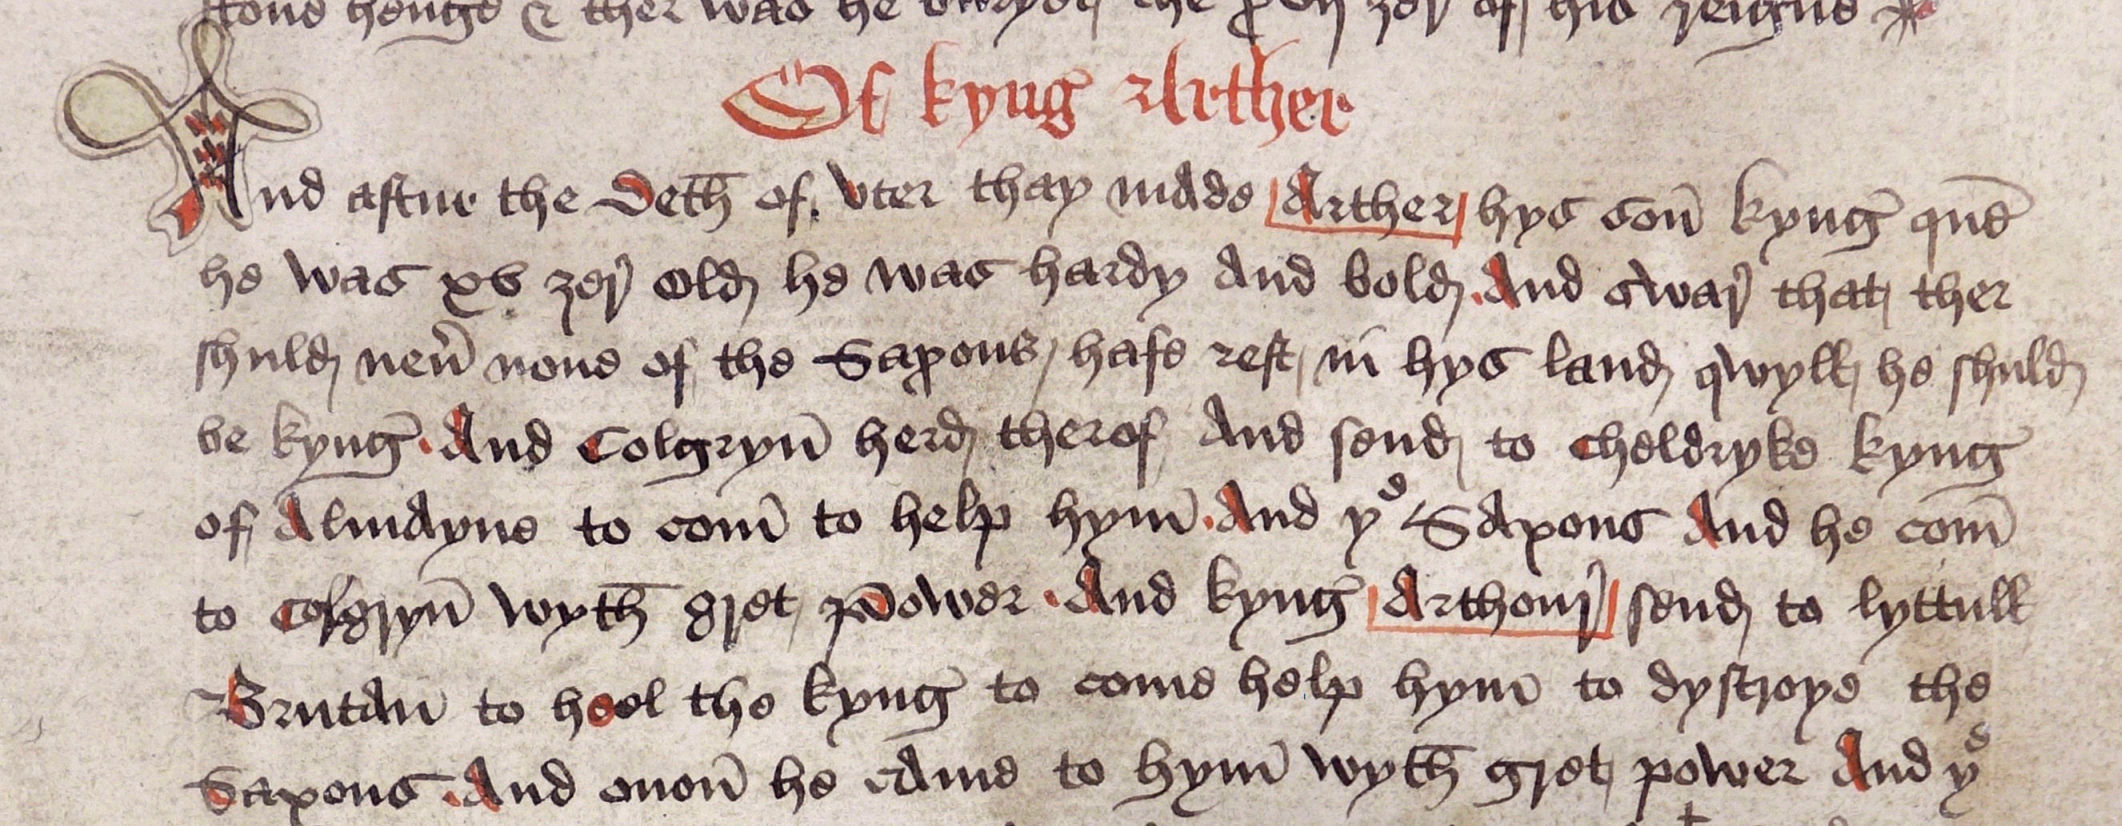 stone henge & ther was he
Of kyng Arther
And aftur the Deth of Vter thay made Arther hys son kyng qnd
he was xv ȝer old he was hardy And bold And swar that ther
schuld neu none of the Saxons hafe rest in hys land qwyll he schuld
be kyng And Colgryn herd therof And send to Cheldryke kyng
of Almayne to com to help hym And yᵉ Saxons And he com
to Colgryn wyth gret power And kyng Arthour send to lyttull
Brutan to hoel the kyng to come help hym to dystroye the
Saxons And onon he came to hym wyth gret power And yᵉ